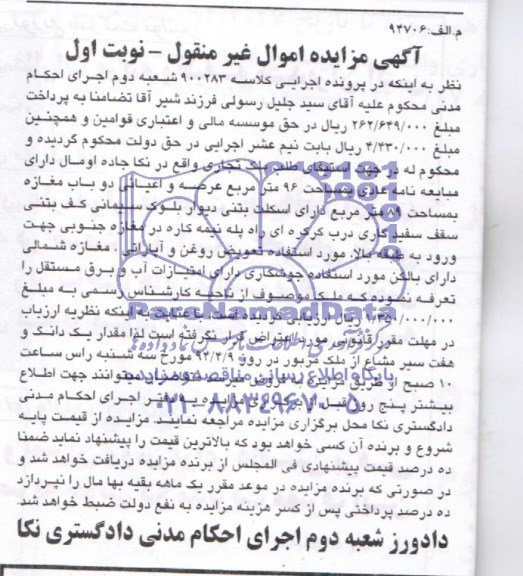 م.الف:۹۲۷۰۶
آگهی مزایده اموال غیر منقول - نوبت اول
نظر به اینکه در پرونده اجرایی کلاسه ۹۰۰۲۸۳ شعبه دوم اجرای احکام
مدنی محکوم علیه آقای سید جلیل رسولی فرزند شیر آقا تضامنا به پرداخت
مبلغ ۲۶۲/۶۴۹/۰۰۰ ریال در حق موسسه مالی و اعتباری قوامین و همچنین
مبلغ ۴/۲۳۰/۰۰۰ ریال بابت نیم عشر اجرایی در حق دولت محکوم گردیده و
محکوم له در جهت استیفای طلب ملک تجاری واقع در نکا جاده اومال دارای
مبایعه نامه عادی بمساحت ۹۶ متر مربع عرصه و اعیانی دو باب مغازه
بمساحت ۸۹ متر مربع دارای اسکلت بتنی دیوار بلوک سیمانی کف بتنی
سقف سفید کاری درب کرکره ای راه پله نیمه کاره در مغازه جنوبی جهت
ورود به طبقه بالا، مورد استفاده تعویض روغن و آپاراتی، مغازه شمالی
دارای بالکن مورد استفاده جوشکاری دارای امتیازات آب و برق مستقل را
تعرفه نموده که ملک موصوف از ناحیه کارشناس رسمی به مبلغ
۰۰۰/۰۰۰ ریال ارزیابی اینکه نظریه ارزیاب
در مهلت مقرر قانونی مورد اعتراض قرار نگرفته است لذا مقدار یک دانگ و
هفت سیر مشاع از ملک مزبور در روز ۹۲/۴/۹ مورخ سه شنبه راس ساعت
۱۰ صبح از طریق مزایده به فروش میرسد متقاضیان میتوانند جهت اطلاع
بیشتر پنج روز قبل از برگزاری مزایده به دفتر اجرای احکام مدنی
دادگستری نکا محل برگزاری مزایده مراجعه نمایند. مزایده از قیمت پایه
شروع و برنده آن کسی خواهد بود که بالاترین قیمت را پیشنهاد نماید ضمنا
ده درصد قیمت پیشنهادی فی المجلس از برنده مزایده دریافت خواهد شد و
در صورتی که برنده مزایده در موعد مقرر یک ماهه بقیه بها مال را نپردازد
ده درصد پرداختی پس از کسر هزینه مزایده به نفع دولت ضبط خواهد شد.
دادورز شعبه دوم اجرای احکام مدنی دادگستری نکا
ParsNamadData
پایگاه اطلاع رسانی مناقصه و مزایده
۰۲۱-۸۸۳۴۹۶۷۰-۵